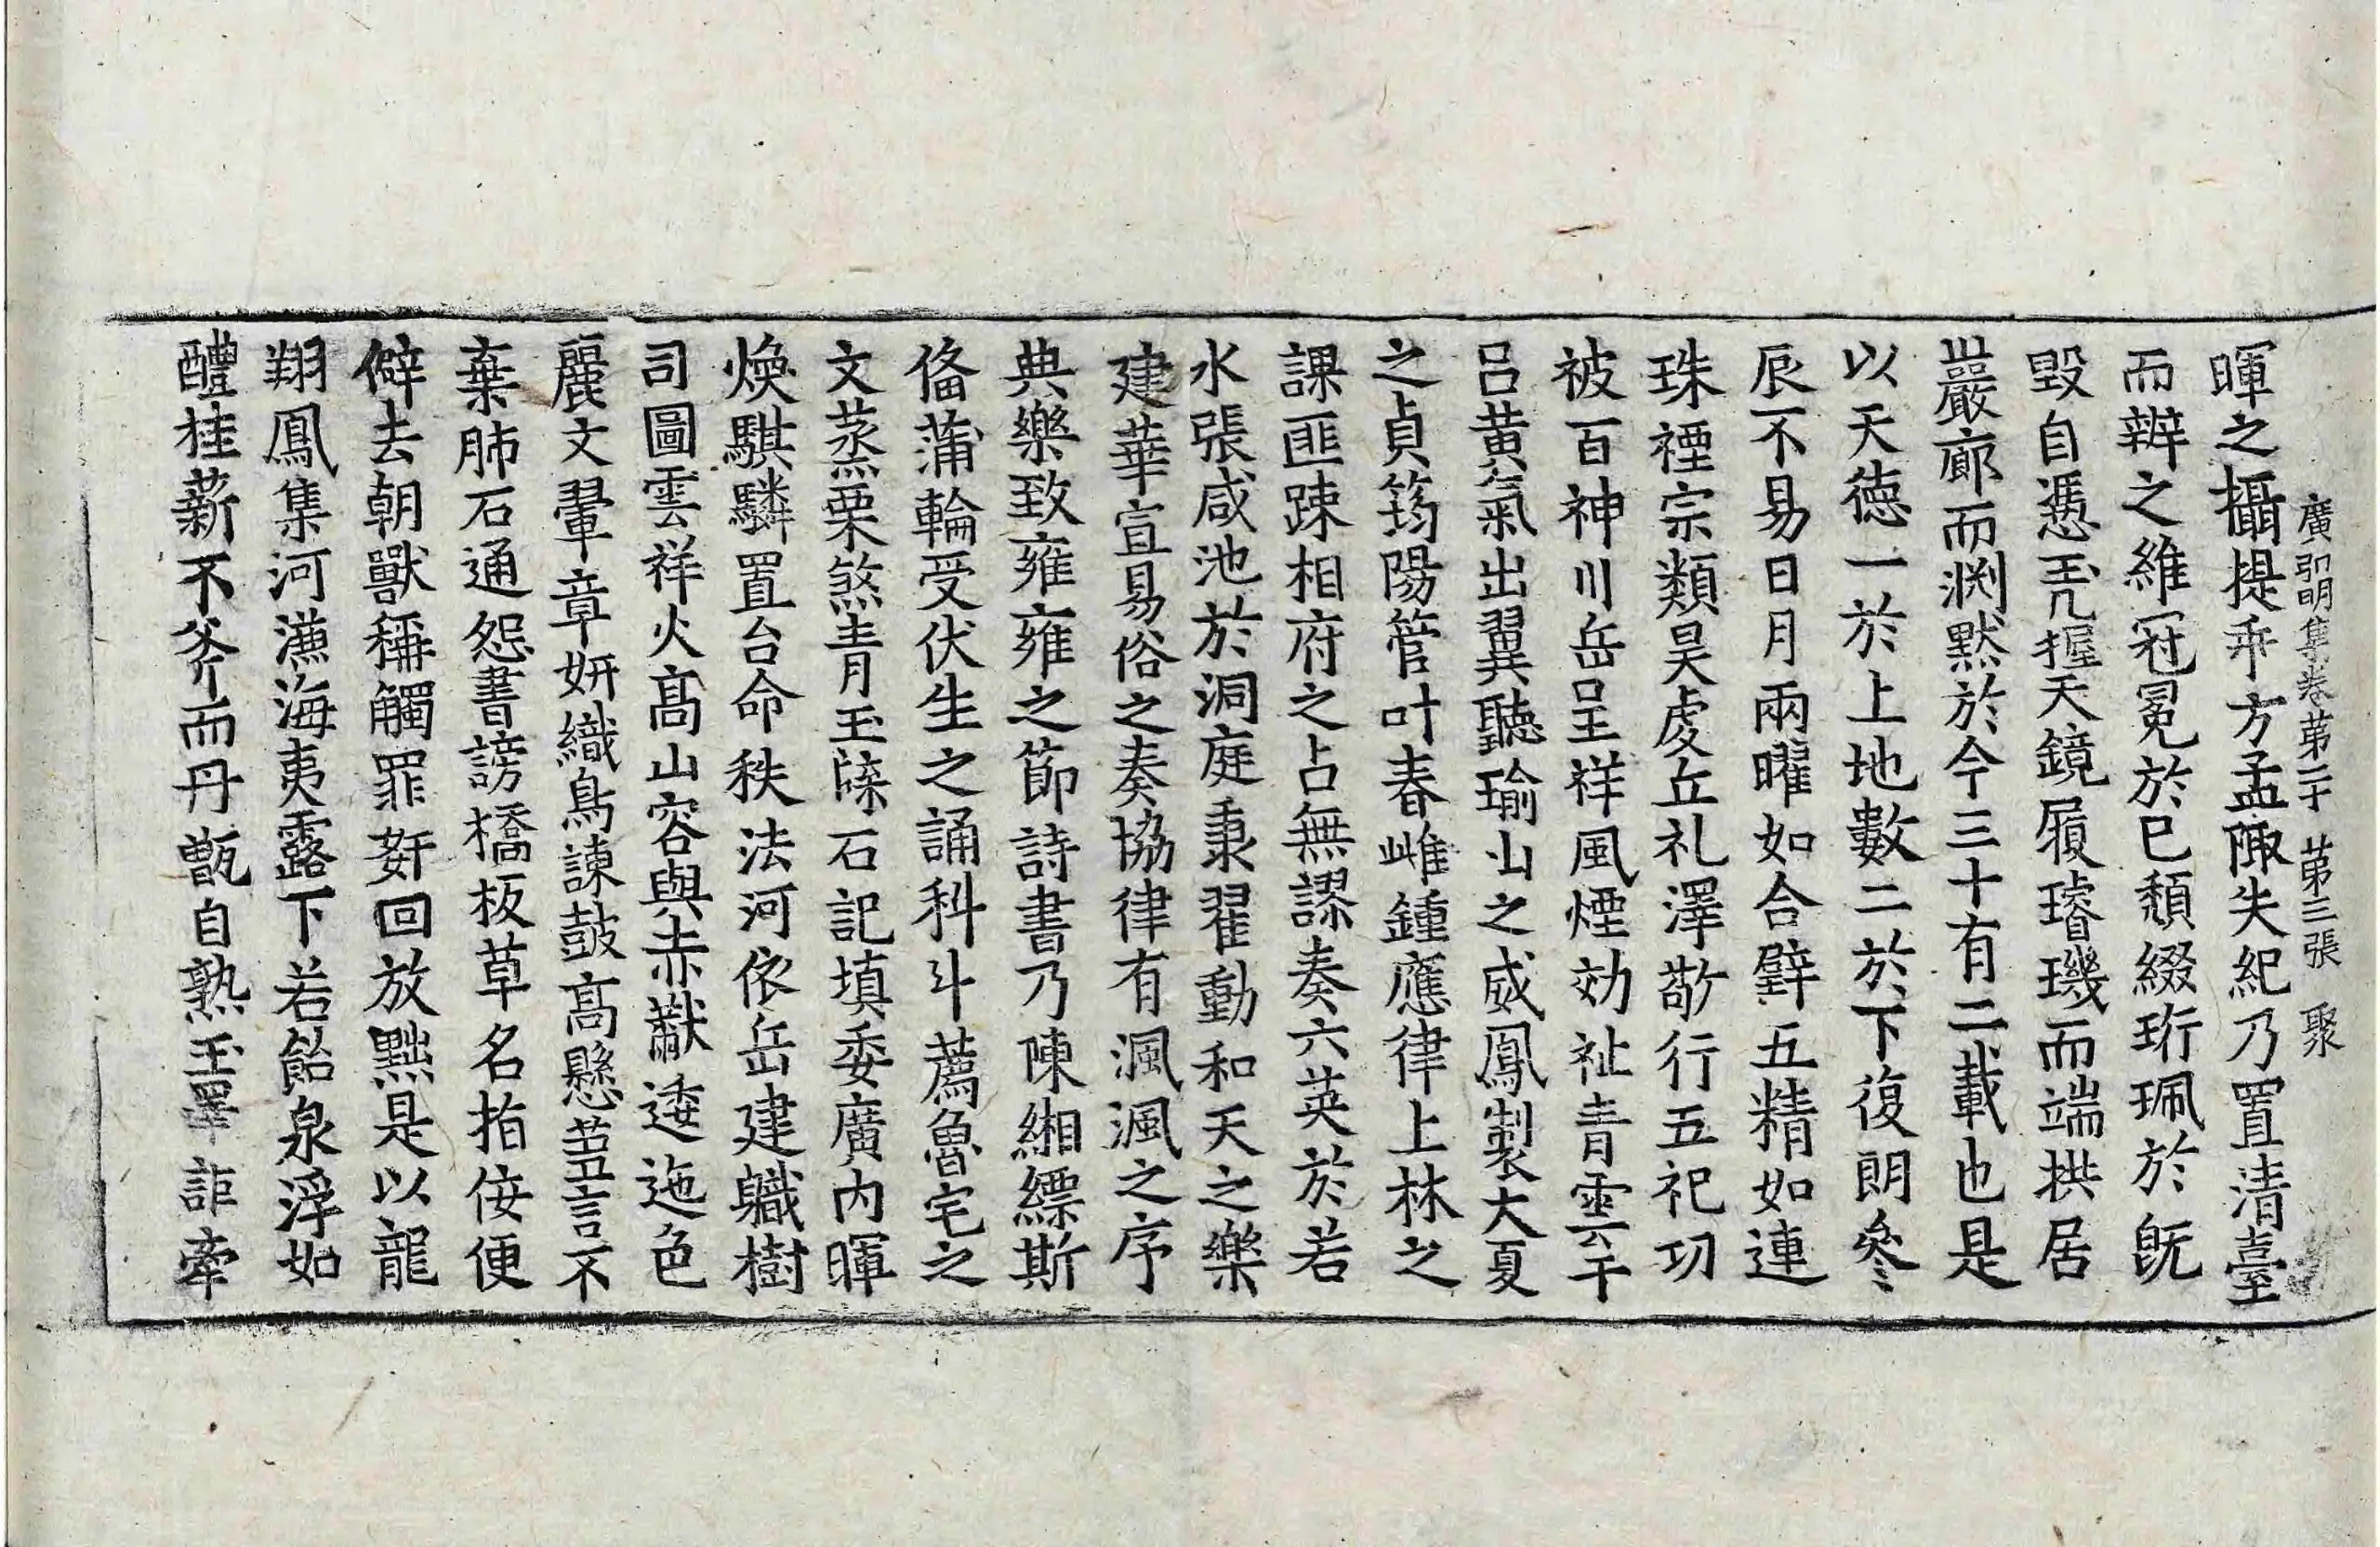 廣弘明集卷第二十　第三張　聚
暉之攝提乖方孟陬失紀乃置清臺
而辨之維冠冕於已頹綴珩珮於旣
毀自憑玉几握天鏡履璿璣而端拱居
巖廊而渊默於今三十有二載也是
以天德一於上地數二於下復朗叅
辰不易日月兩曜如合璧五精如連
珠禋宗類昊虔丘礼澤敬行五祀功
被百神川岳呈祥風煙効祉青雲干
呂黃氣出翼聽瑜山之威鳳製大夏
之貞筠陽管叶春雌鍾應律上林之
課匪踈相府之占無謬奏六英於若
水張咸池於洞庭秉翟動和天之樂
建華宣易俗之奏協律有渢渢之序
典樂致雍雍之節詩書乃陳緗縹斯
俻蒲輪受伏生之誦科斗薦魯宅之
文蒸栗煞青玉牒石記填委廣内暉
煥騏驎置台命秩法河依岳建軄樹
司圖雲祥火高山容與赤黻逶迤色
麗文翬章妍織鳥諫鼓高懸蒭言不
棄肺石通怨書謗橋板草名指佞便
僻去朝獸稱觸罪姧回放黜是以龍
翔鳳集河㶑海夷露下若飴泉浮如
醴桂薪不斧而丹甑自熟玉罼詎牽